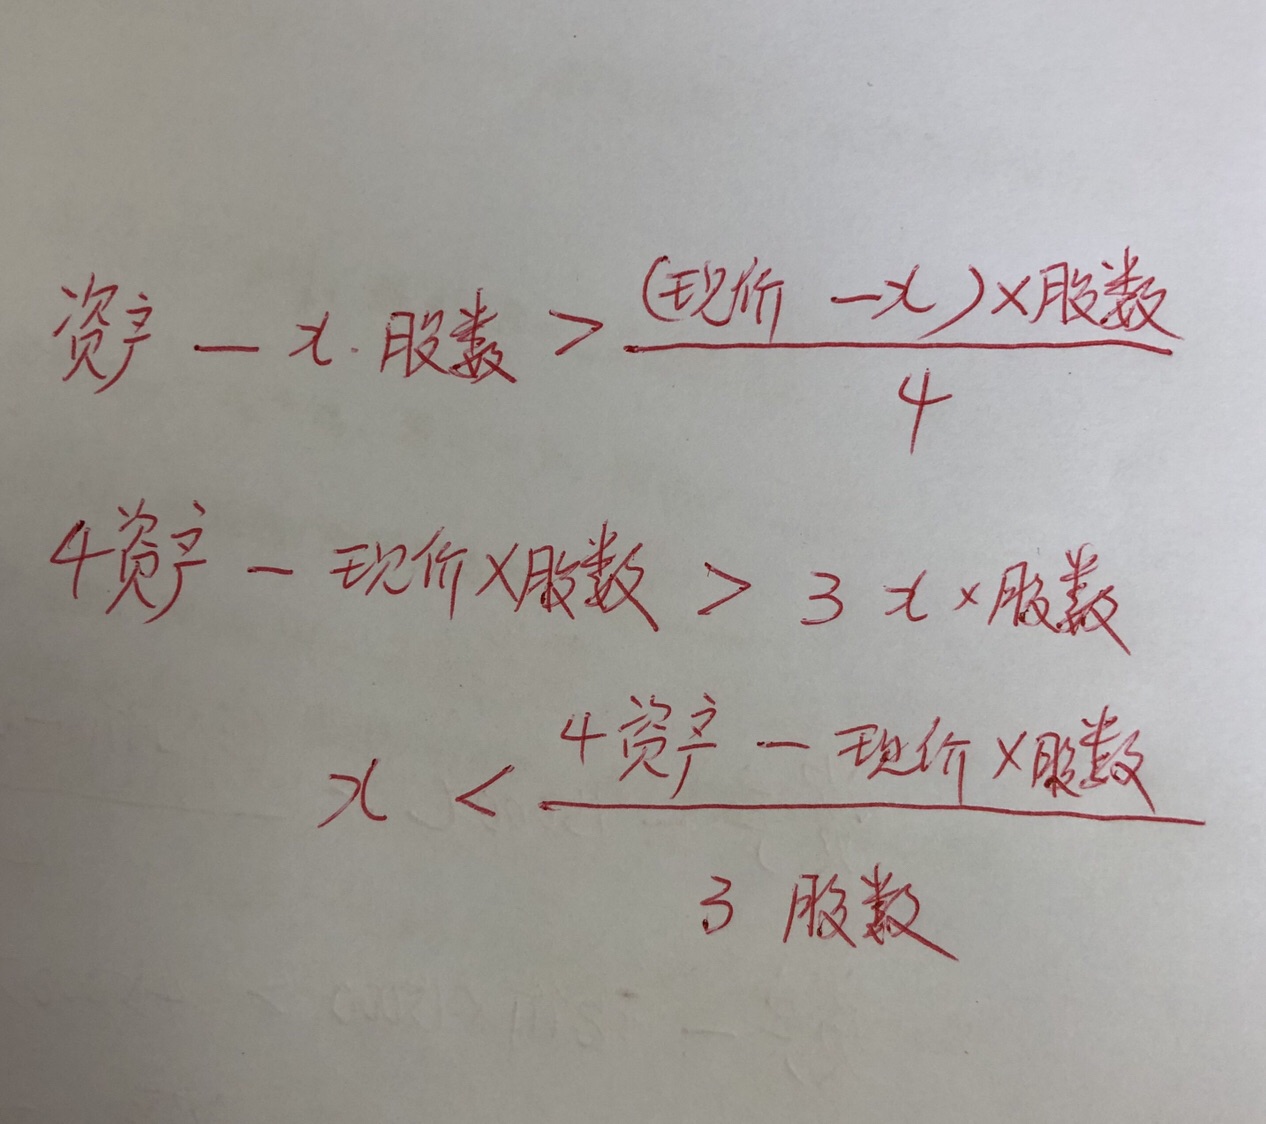 资产 — x·股数 > (现价 — x)×股数 / 4
4资产 — 现价×股数 > 3x×股数
x < 4资产 — 现价×股数 / 3股数